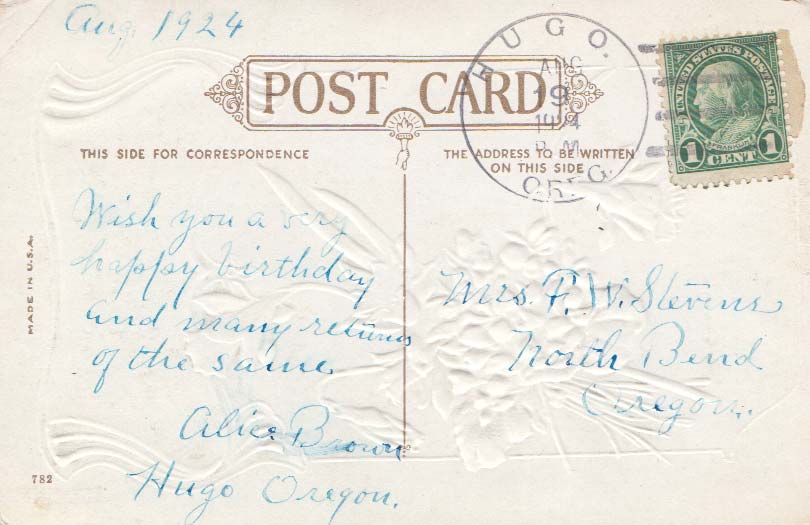 Aug. 1924
POST CARD
HUGO.
AUG
19
1924
P.M.
OREG.
UNITED STATES POSTAGE
FRANKLIN
1 CENT 1
THIS SIDE FOR CORRESPONDENCE
THE ADDRESS TO BE WRITTEN
ON THIS SIDE
Wish you a very
happy birthday
and many returns
of the same
Alice Brown
Hugo Oregon.
Mrs. F. W. Stevens
North Bend
Oregon.
MADE IN U.S.A.
782